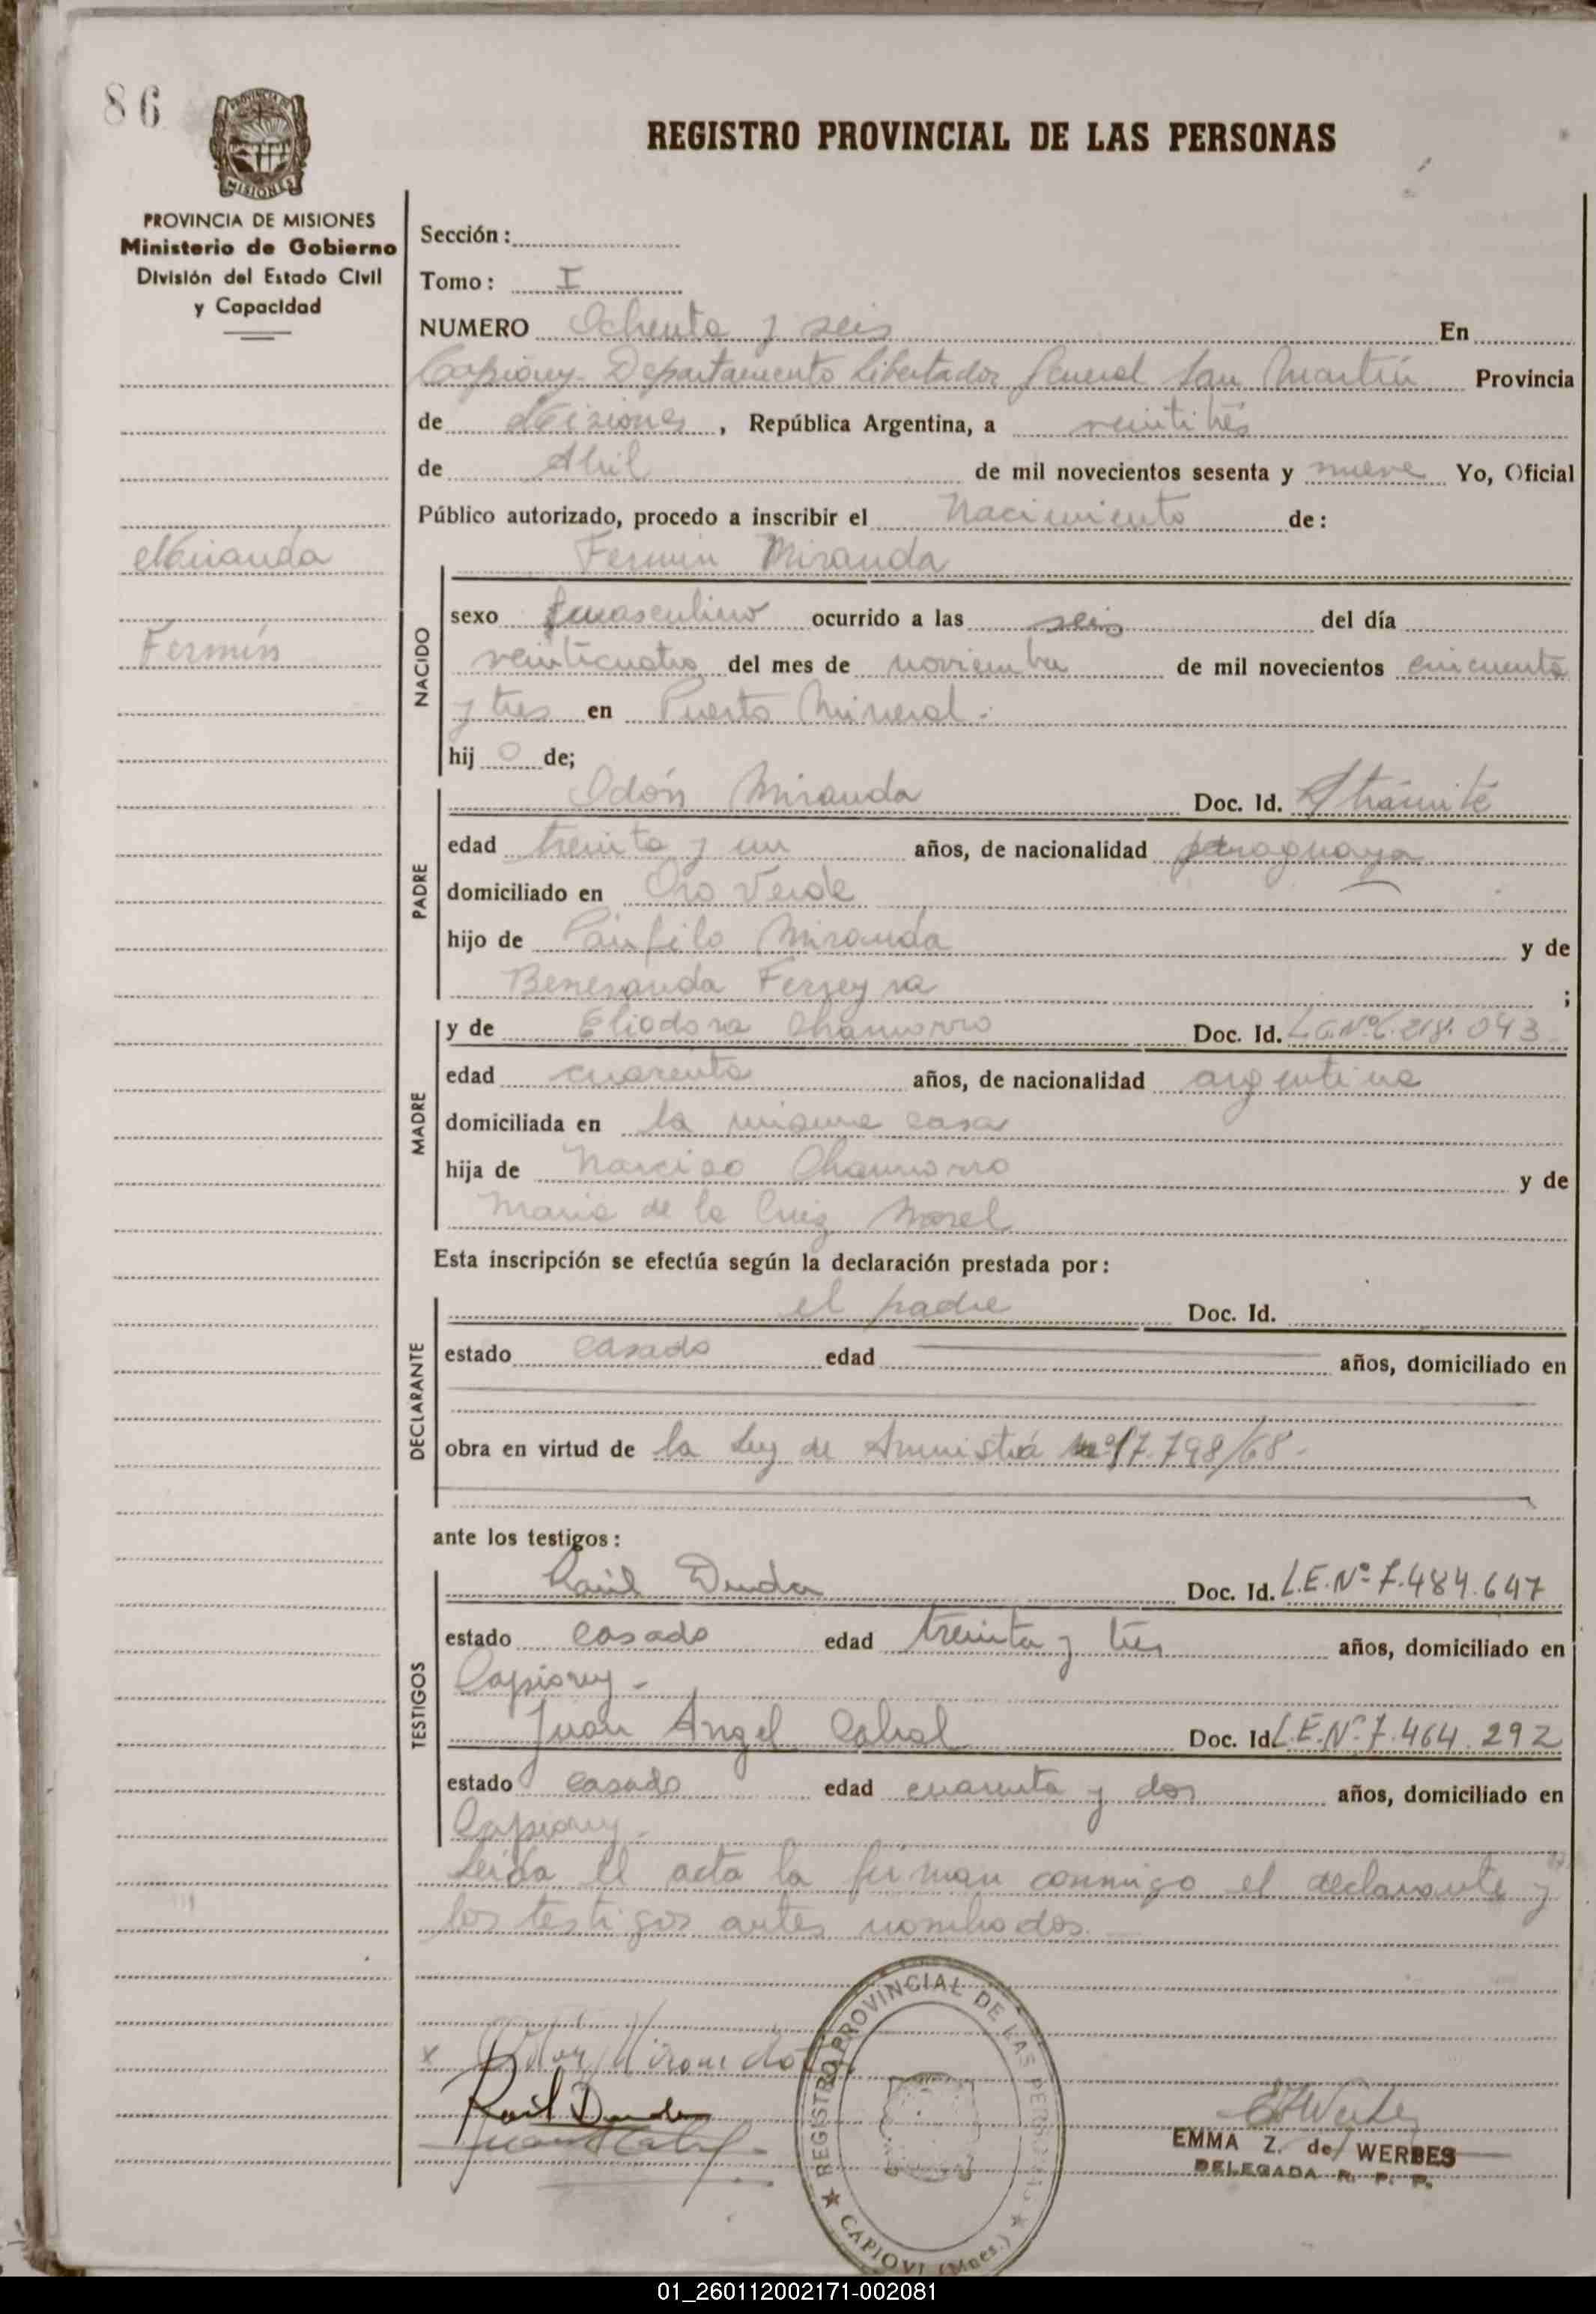 86
REGISTRO PROVINCIAL DE LAS PERSONAS
PROVINCIA DE MISIONES
Ministerio de Gobierno
División del Estado Civil
y Capacidad
Sección:
Tomo: I
NUMERO Ochenta y seis En
Capiovy - Departamento Libertador General San Martín Provincia
de Misiones, República Argentina, a veintitrés
de Abril de mil novecientos sesenta y nueve Yo, Oficial
Público autorizado, procedo a inscribir el Nacimiento de:
Miranda
Fermín
NACIDO
Fermin Miranda
sexo masculino ocurrido a las seis del día
veinticuatro del mes de noviembre de mil novecientos cincuenta
y tres en Puerto Mineral.
hijo de;
PADRE
Odón Miranda Doc. Id. trámite
edad treinta y un años, de nacionalidad paraguaya
domiciliado en Oro Verde
hijo de Pánfilo Miranda y de
Beneranda Ferreyra ;
MADRE
y de Eliodora Chamorro Doc. Id. 218.043
edad cuarenta años, de nacionalidad argentina
domiciliada en la misma casa
hija de Narciso Chamorro y de
María de la Cruz Morel
Esta inscripción se efectúa según la declaración prestada por:
DECLARANTE
el padre Doc. Id.
estado casado edad años, domiciliado en
obra en virtud de la Ley de Amnistía nº17.798/68.
ante los testigos:
TESTIGOS
Raúl Duda Doc. Id. L.E.Nº 7.484.647
estado casado edad treinta y tres años, domiciliado en
Capiovy -
Juan Angel Cabral Doc. Id. L.E.Nº 7.464.292
estado casado edad cuarenta y dos años, domiciliado en
Capiovy -
Leída el acta la firman conmigo el declarante y
los testigos antes nombrados.
x Odón Miranda
Raúl Duda
REGISTRO PROVINCIAL DE LAS PERSONAS
★ CAPIOVI (Mnes.) ★
EMMA Z. de WERBES
DELEGADA R. P. P.
01_260112002171-002081